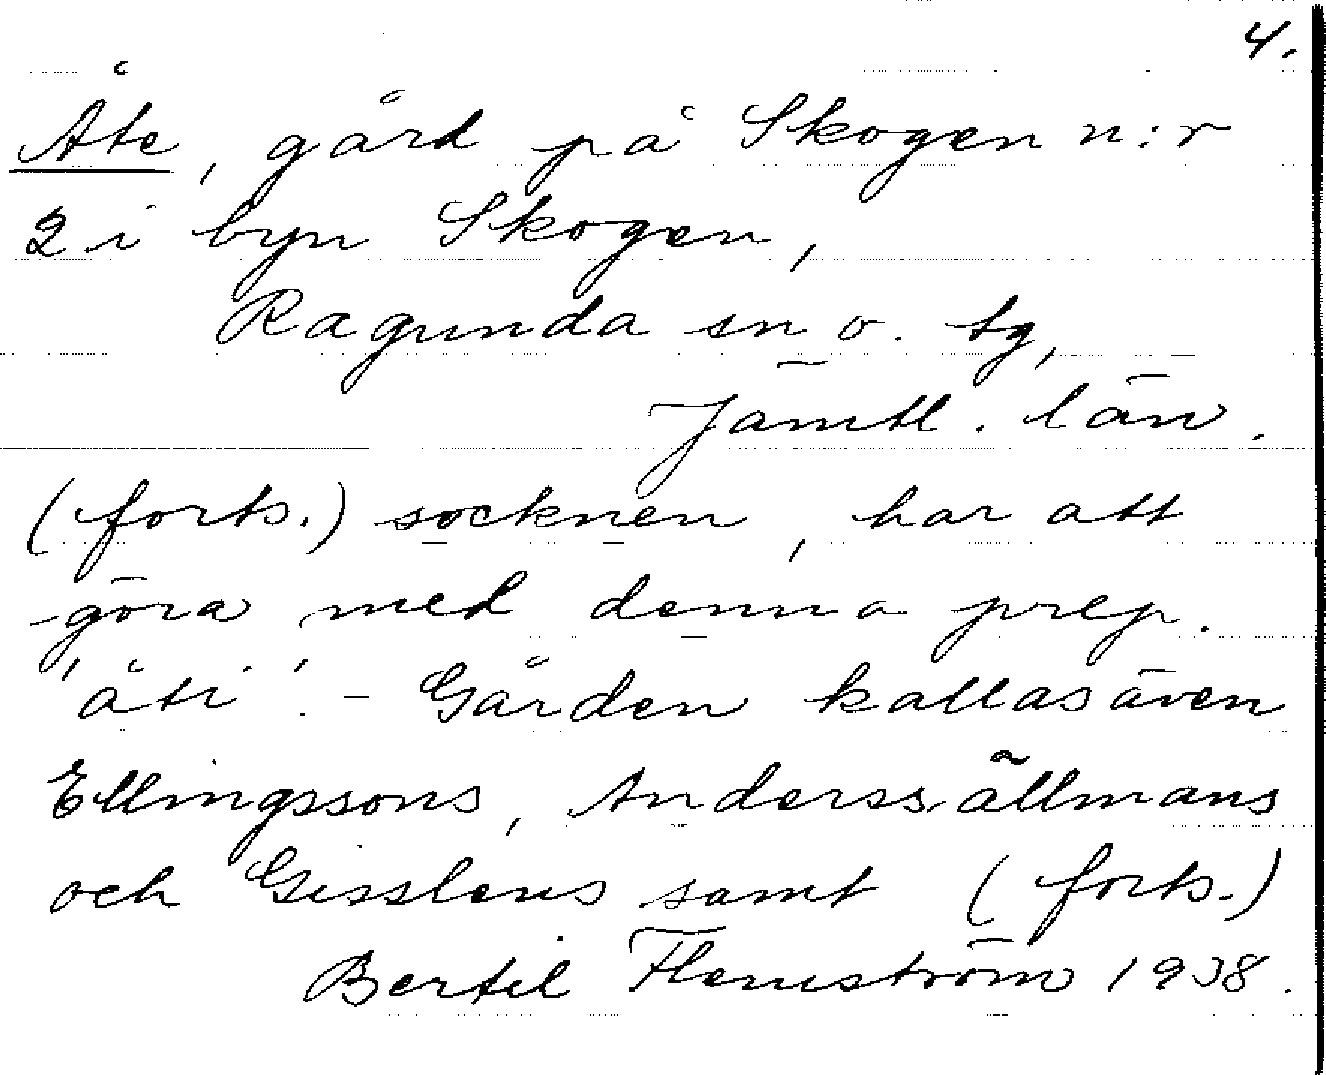 4.
Åte, gård på Skogen n:r
2 i byn Skogen,
Ragunda sn o. tg,
Jämtl. län.
(forts.) socknen, har att
göra med denna prep.
'åti'. - Gården kallas även
Ellingssons, Anderssällmans
och Gisslens samt (forts.)
Bertil Flemström 1938.